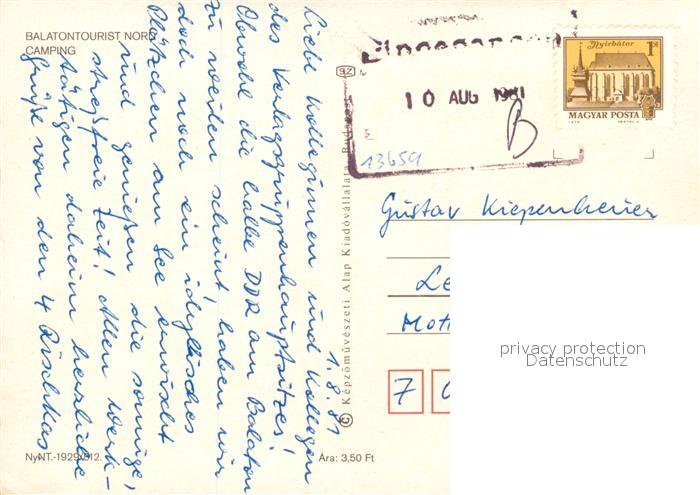 BALATONTOURIST NORD
CAMPING
1.8.81
Liebe Kolleginnen und Kollegen
des Verlagsgruppenhauptsitzes!
Obwohl die halbe DDR am Balaton
zu weilen scheint, haben wir
doch noch ein idyllisches
Plätzchen am See erwischt
und genießen die sonnige,
stressfreie Zeit! Allen werk-
tätigen daheim herzliche
Grüße von den 4 Rischkas
NyNT.-1929/812.
Ára: 3,50 Ft
© Képzőművészeti Alap Kiadóvállalata, Budapest
SZ
10 AUG 1981
B
13659
Nyírbátor
1 Ft
MAGYAR POSTA
Gustav Kiepenheuer
Le
Mott
7 0
privacy protection
Datenschutz